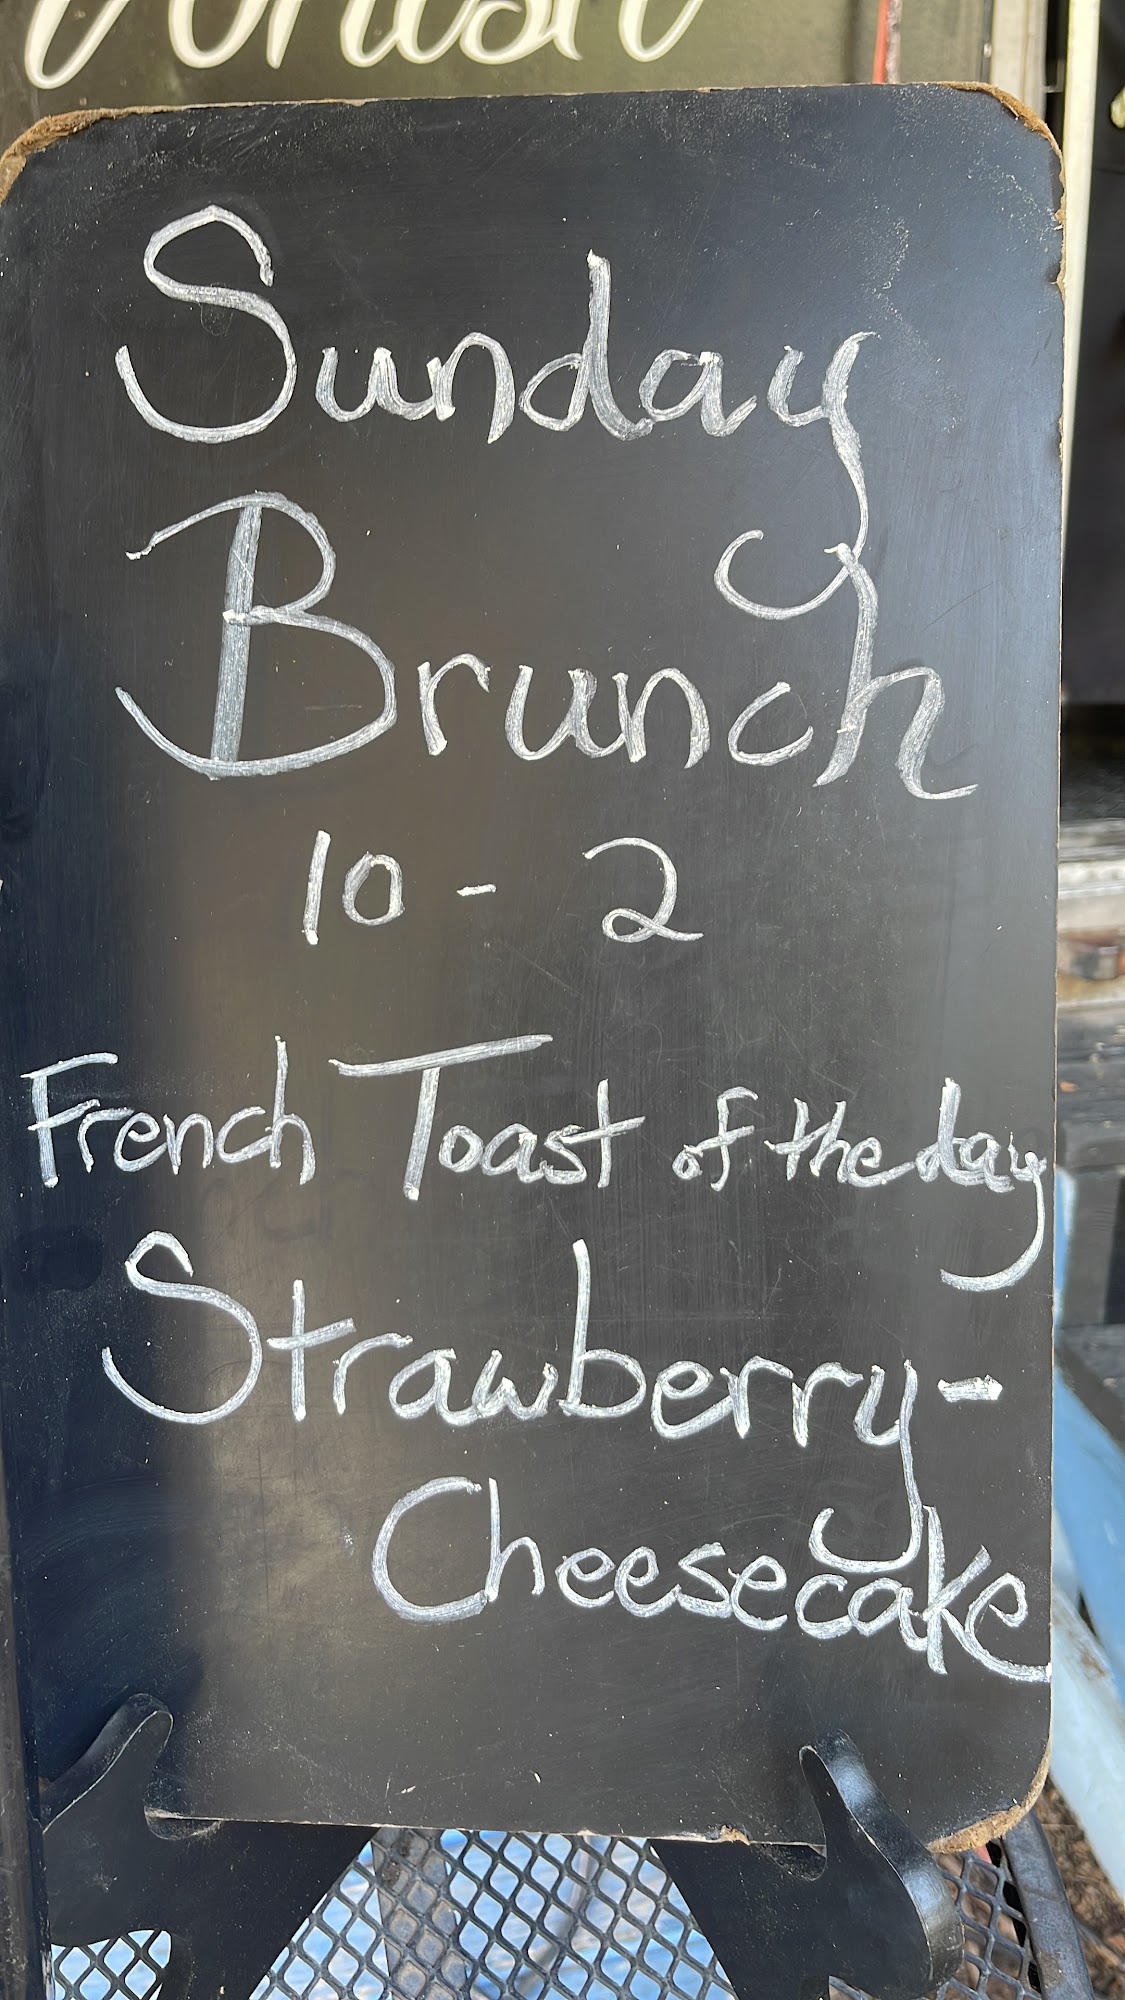 Sunday
Brunch
10 - 2
French Toast of the day
Strawberry-
Cheesecake